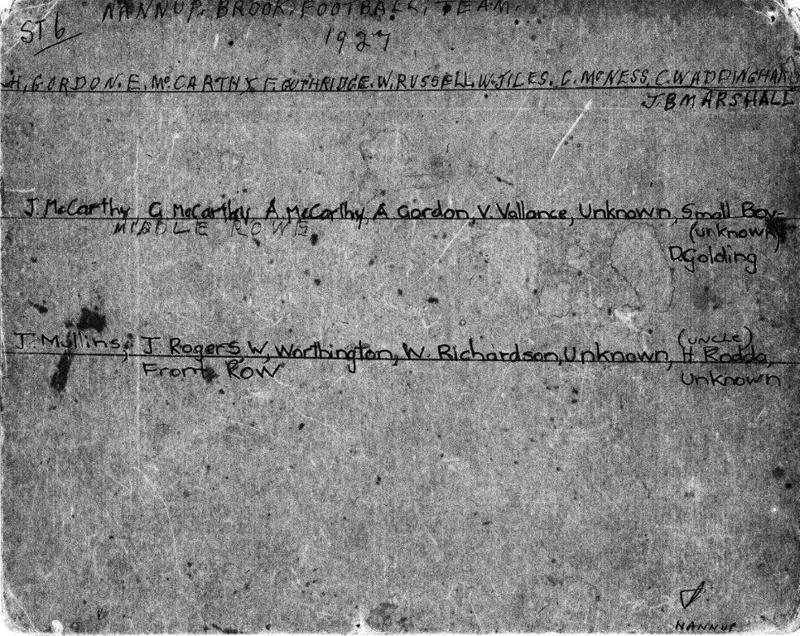 NANNUP. BROOK. FOOTBALL. TEAM.
ST6
1927
H. GORDON. E. McCARTHY F. GUTHRIDGE. W. RUSSELL. W. JILES. C. McNESS. C. WADDINGHAM
J. B MARSHALL
J. McCarthy, G McCarthy, A. McCarthy, A Gordon, V. Vallance, Unknown, Small Boy-
MIDDLE ROWS
(unknown)
D. Golding
(UNCLE)
J. Mullins, J Rogers, W. Worthington, W. Richardson, Unknown, H Rodda,
Front Row
Unknown
NANNUP